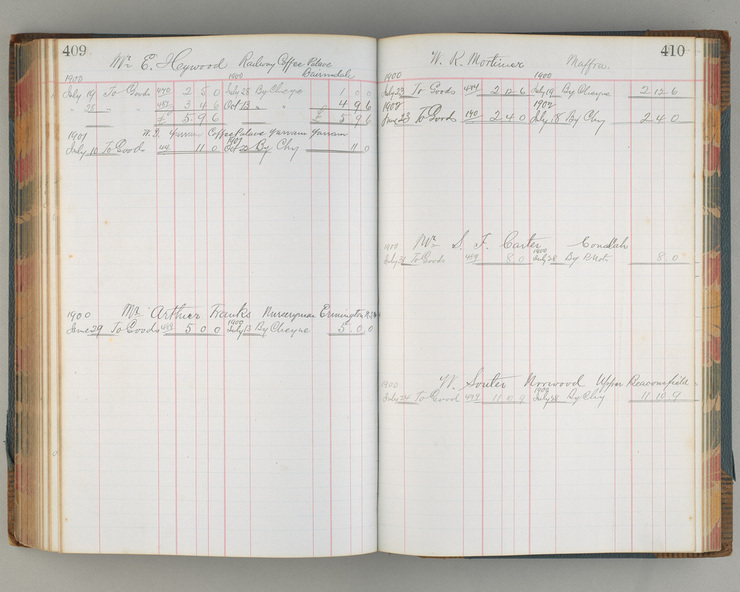 409
Mr E. Heywood Railway Coffee Palace
Bairnsdale
1900 1900
July 19 To Goods 440 2 5 0 July 28 By Cheque 1 0 0
" 28 " " 452 3 4 6 Oct 13 " " 4 9 6
£ 5 9 6 £ 5 9 6
1901 Coffee Palace Yarram Yarram
July 10 To Goods 11 0 Oct By Chq 11 0
1900 Mr Arthur Franks Nurseryman Ermington N.S.W
June 29 To Goods 5 0 0 July 13 By Cheque 5 0 0
410
W. R. Mortimer Maffra
1900 1900
July To Goods 2 12 6 July 19 By Cheque 2 12 6
1902 1902
June 23 To Goods 140 2 4 0 July 18 By Chq 2 4 0
1900 Mr S. F. Carter
July 21 To Goods 8 0 July 28 By 8 0
1900 W. Souter Norwood Upper Beaconsfield
July 24 To Good 11 10 9 July 28 By Chq 11 10 9